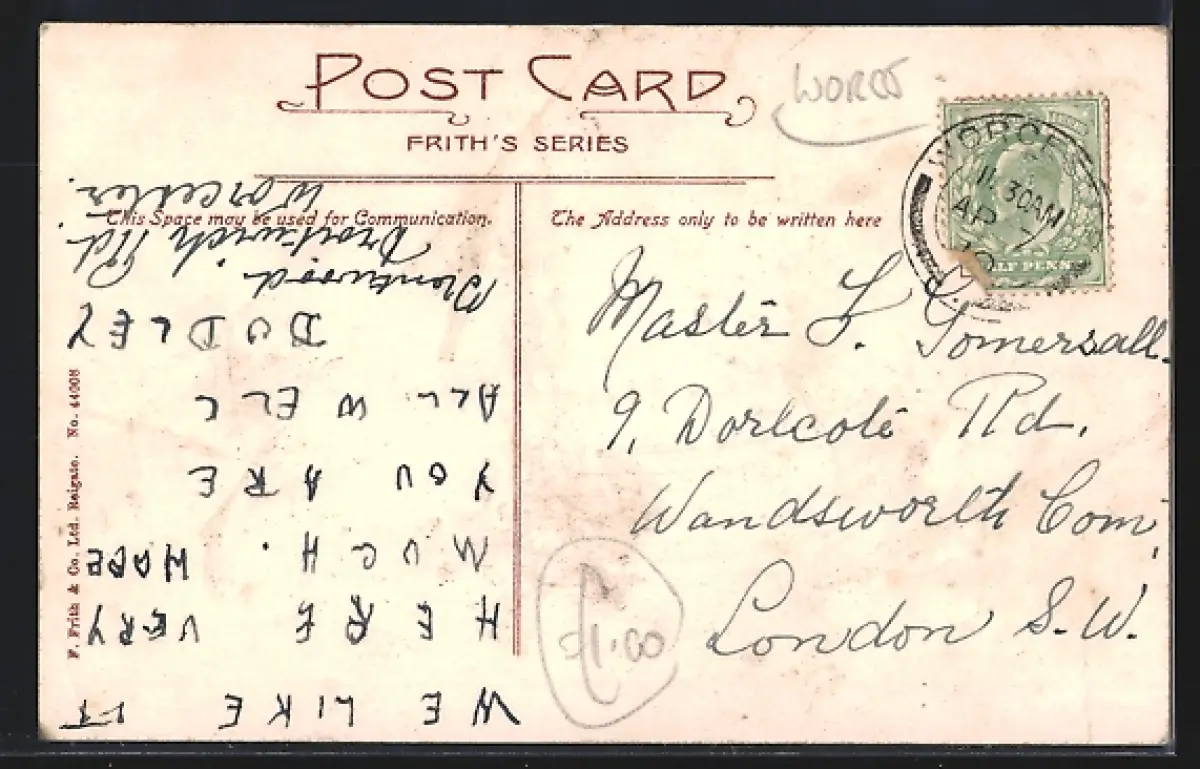 POST CARD
FRITH'S SERIES
WORCS
This Space may be used for Communication.
The Address only to be written here
WORCE
11.30AM
AP 7
HALF PENNY
Master L. Somersall.
9, Dorlcote Rd.
Wandsworth Com,
London S.W.
£1.00
F. Frith & Co. Ltd. Reigate. No. 44008
WE LIKE IT
HERE VERY
MUCH. HOPE
YOU ARE
ALL WELL
DUDLEY
Droitwich Rd.
Worcester.